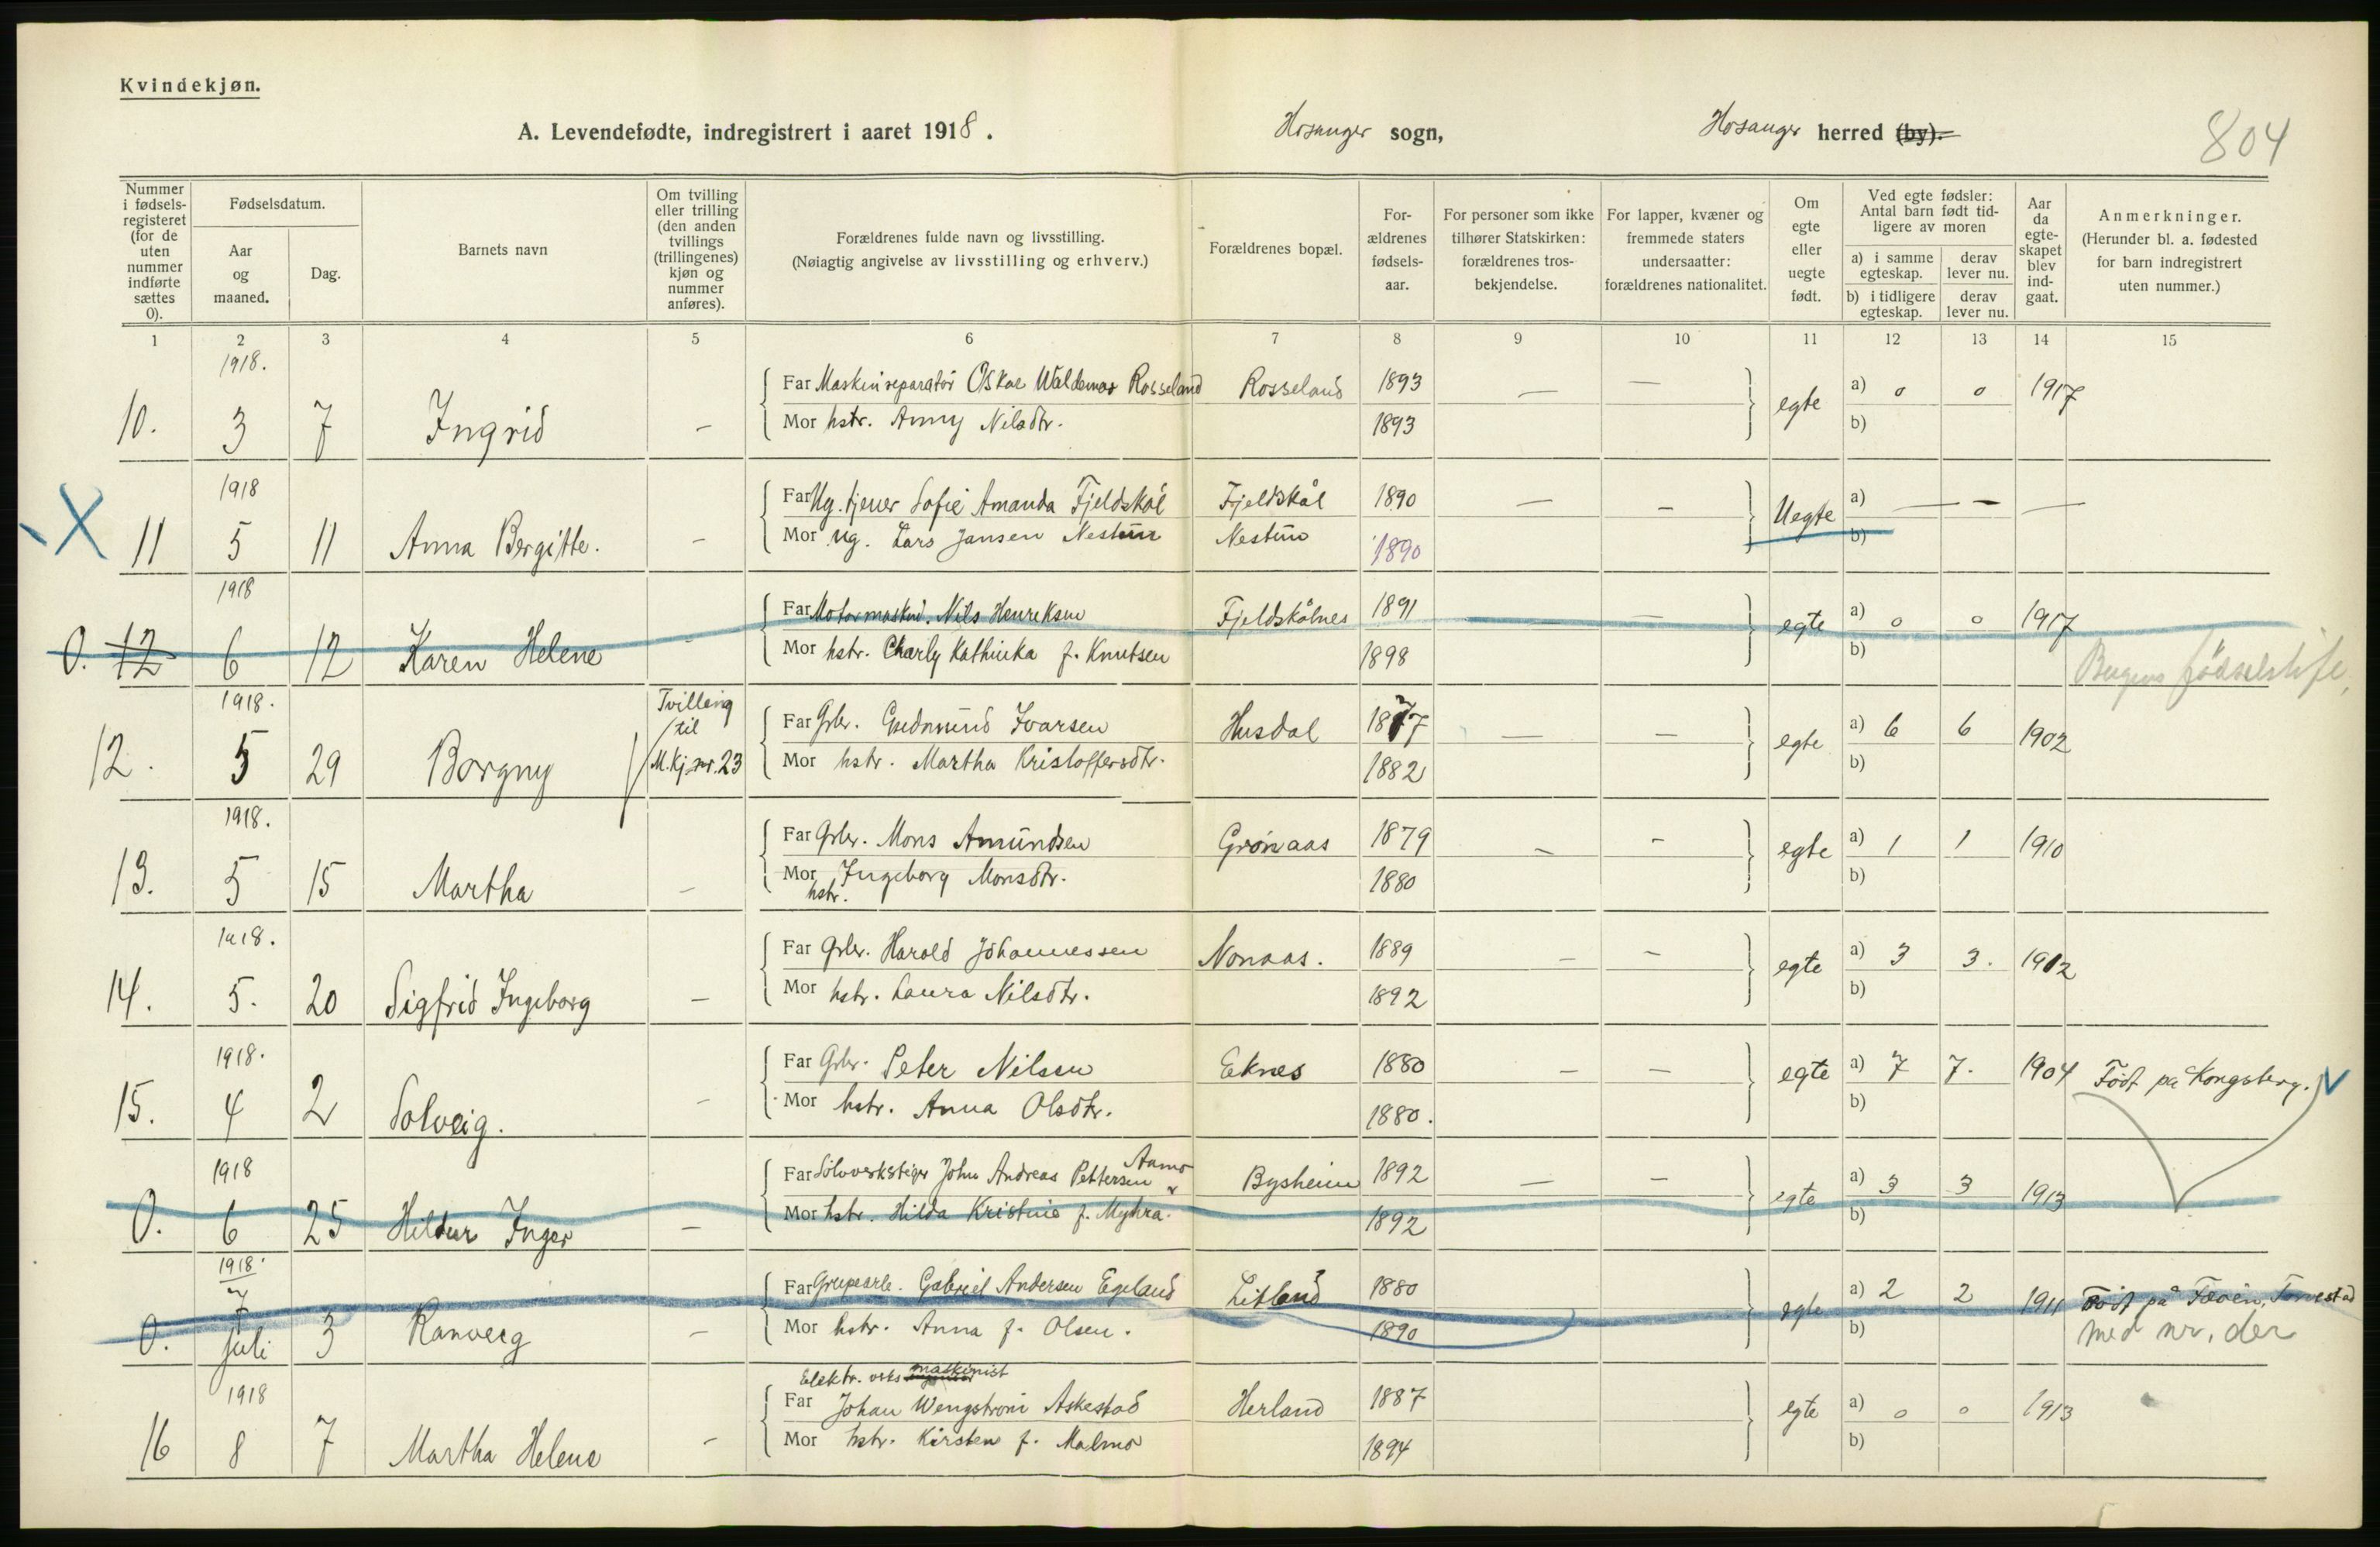 Kvindekjøn.
A. Levendefødte, indregistrert i aaret 1918.
Hosanger sogn,
Hosanger herred (by).
804
Nummer i fødsels-registeret (for de uten nummer indførte sættes 0).
Fødselsdatum.
Aar og maaned.
Dag.
Barnets navn
Om tvilling eller trilling (den anden tvillings (trillingenes) kjøn og nummer anføres).
Forældrenes fulde navn og livsstilling.
(Nøiagtig angivelse av livsstilling og erhverv.)
Forældrenes bopæl.
For-ældrenes fødsels-aar.
For personer som ikke tilhører Statskirken: forældrenes tros-bekjendelse.
For lapper, kvæner og fremmede staters undersaatter: forældrenes nationalitet.
Om egte eller uegte født.
Ved egte fødsler: Antal barn født tid-ligere av moren
a) i samme egteskap.
derav lever nu.
b) i tidligere egteskap.
derav lever nu.
Aar da egte-skapet blev ind-gaat.
Anmerkninger.
(Herunder bl. a. fødested for barn indregistrert uten nummer.)
1 2 3 4 5 6 7 8 9 10 11 12 13 14 15
1918.
10. 3 7 Ingrid —
Far Maskinreparatör Oskar Waldemar Rosseland Rosseland 1893 — — egte a) 0 0 1917
Mor hstr. Anny Nilsdtr. 1893 b)
1918
X 11 5 11 Anna Bergitte. —
Far Ug. tjener Sofie Amanda Fjeldskål Fjeldskål 1890 — — Uegte a) — — —
Mor ug. Lars Jansen Nestun Nestun 1890 b)
1918
0. 12 6 12 Karen Helene -
Far Motormaskin. Nils Henriksen Fjeldskålnes 1891 — — egte a) 0 0 1917
Mor hstr. Charly Kathinka f. Knutsen 1898 b)
Bergens fødselstift.
1918.
12. 5 29 Borgny Tvilling til M.kj. nr. 23
Far Grbr. Gudmund Ivarsen Husdal 1877 — — egte a) 6 6 1902
Mor hstr. Martha Kristoffersdtr. 1882 b)
1918.
13. 5 15 Martha —
Far Grbr. Mons Amundsen Grønaas 1879 - - egte a) 1 1 1910
Mor Ingeborg Monsdtr. 1880 b)
hstr.
1918.
14. 5. 20 Sigfrid Ingeborg —
Far Grbr. Harald Johannessen Nonaas. 1889 - — egte a) 3 3. 1912
Mor hstr. Laura Nilsdtr. 1892 b)
1918.
15. 4 2 Solveig. —
Far Grbr. Peter Nilsen Eknes 1880 — — egte a) 7 7. 1904 Född på Kongsberg.
Mor hstr. Anna Olsdtr. 1880. b)
1918
0. 6 25 Hildur Inger —
Far Sölvverkstiger John Andreas Pettersen Aamo Bysheim 1892 — — egte a) 3 3 1913
Mor hstr. Hilda Kristine f. Myhra. 1892 b)
1918.
0. 7 juli 3 Ranveig —
Far Grubearb. Gabriel Andersen Egeland Litland 1880 egte a) 2 2 1911 Född på
Mor hstr. Anna f. Olsen. 1890 b) med nr. der
1918
Elektr. verks maskinist
16 8 7 Martha Helene —
Far Johan Wengstrøm Askestad Herland 1887 egte a) 0 0 1913
Mor hstr. Kirsten f. Malmo 1894 b)